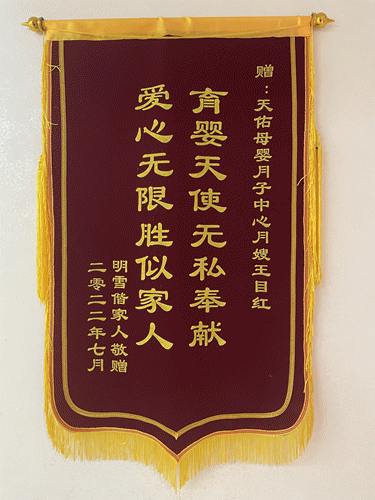 赠：天佑母婴月子中心月嫂王目红
育婴天使无私奉献
爱心无限胜似家人
明雪偕家人敬赠
二零二二年七月